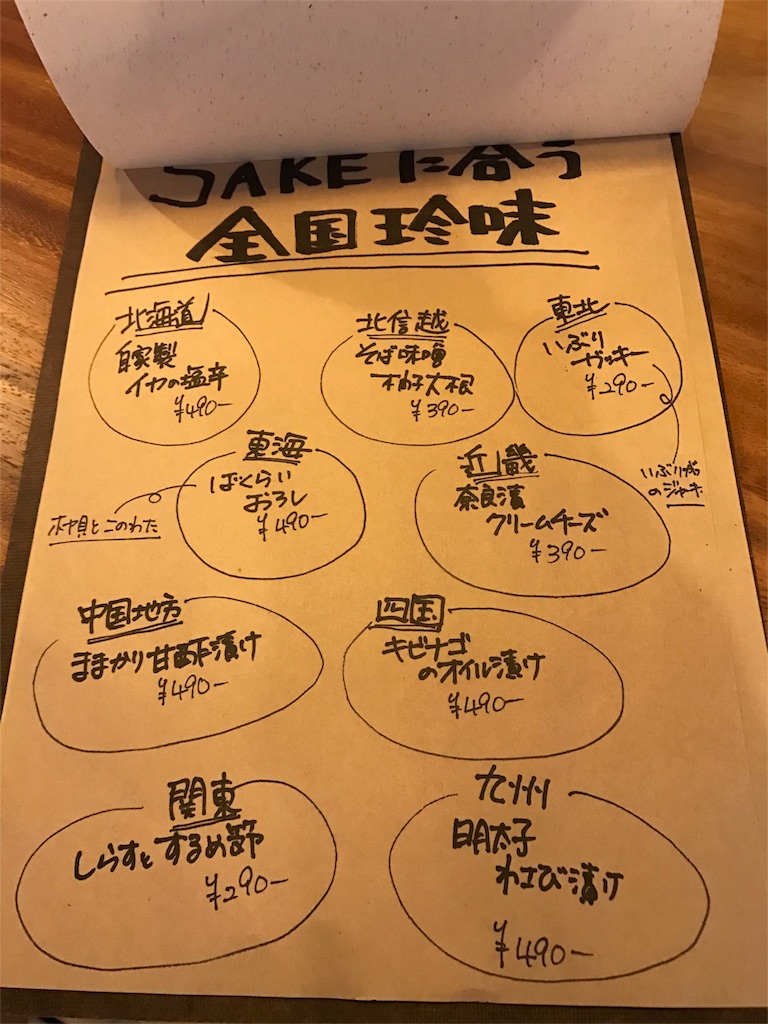 SAKEに合う
全国珍味
北海道
自家製
イカの塩辛
¥490-
北信越
そば味噌
柚子大根
¥390-
東北
いぶり
ガッキー
¥290-
いぶりガッコ
のジャーキー
東海
ばくらい
おろし
¥490-
ホヤ貝とこのわた
近畿
奈良漬
クリームチーズ
¥390-
中国地方
ままかり甘酢漬け
¥490-
四国
キビナゴ
のオイル漬け
¥490-
関東
しらすとするめ節
¥290-
九州
明太子
わさび漬け
¥490-